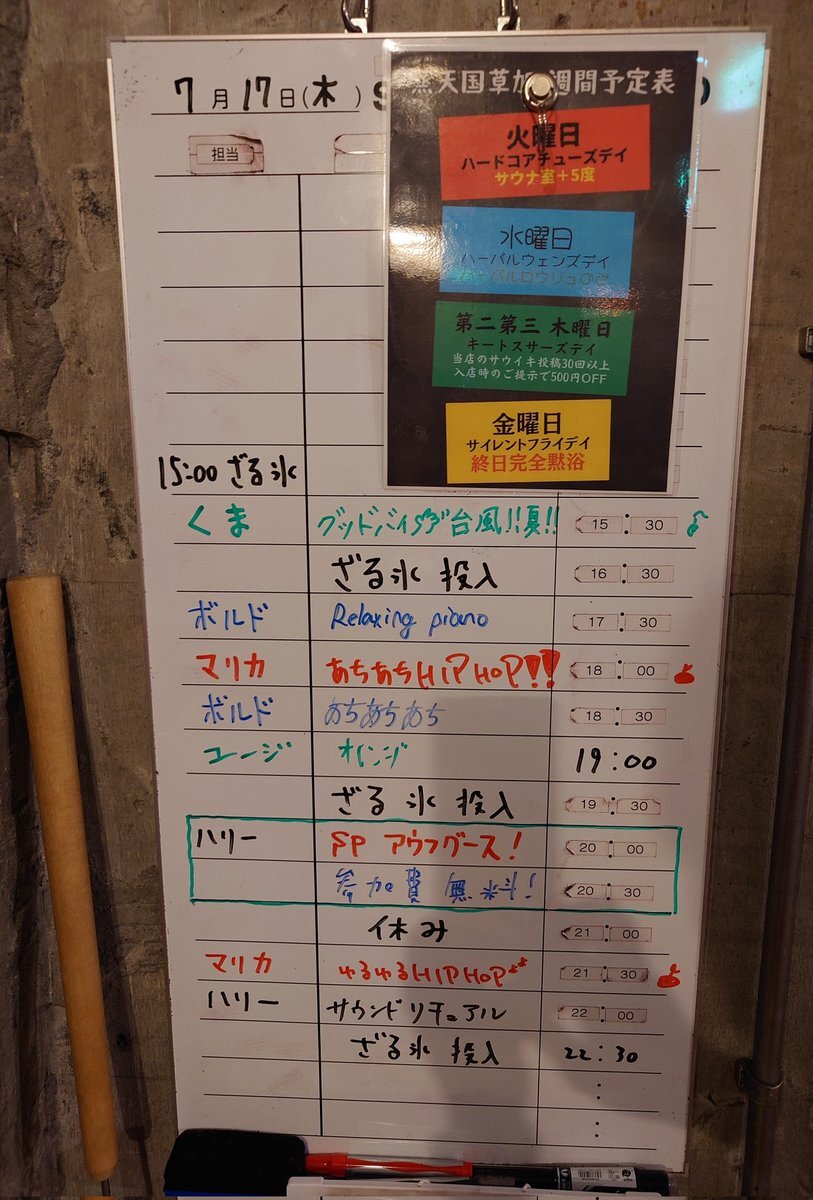 7月17日(木)
天国草加 週間予定表
火曜日
ハードコアチューズデイ
サウナ室+5度
水曜日
ハーバルウェンズデイ
第二第三 木曜日
キートスサーズデイ
当店のサウイキ投稿30回以上
入店時のご提示で500円OFF
金曜日
サイレントフライデイ
終日完全黙浴
担当
15:00 ざる氷
くま グッドバイ 台風!!夏!! 15:30
ざる氷 投入 16:30
ボルド Relaxing piano 17:30
マリカ あちあちHIPHOP!! 18:00
ボルド あちあちあち 18:30
コージ オレンジ 19:00
ざる氷 投入 19:30
ハリー SP アウフグース! 20:00
参加費 無料! 20:30
休み 21:00
マリカ ゆるゆるHIPHOP 21:30
ハリー サウンドリチュアル 22:00
ざる氷 投入 22:30